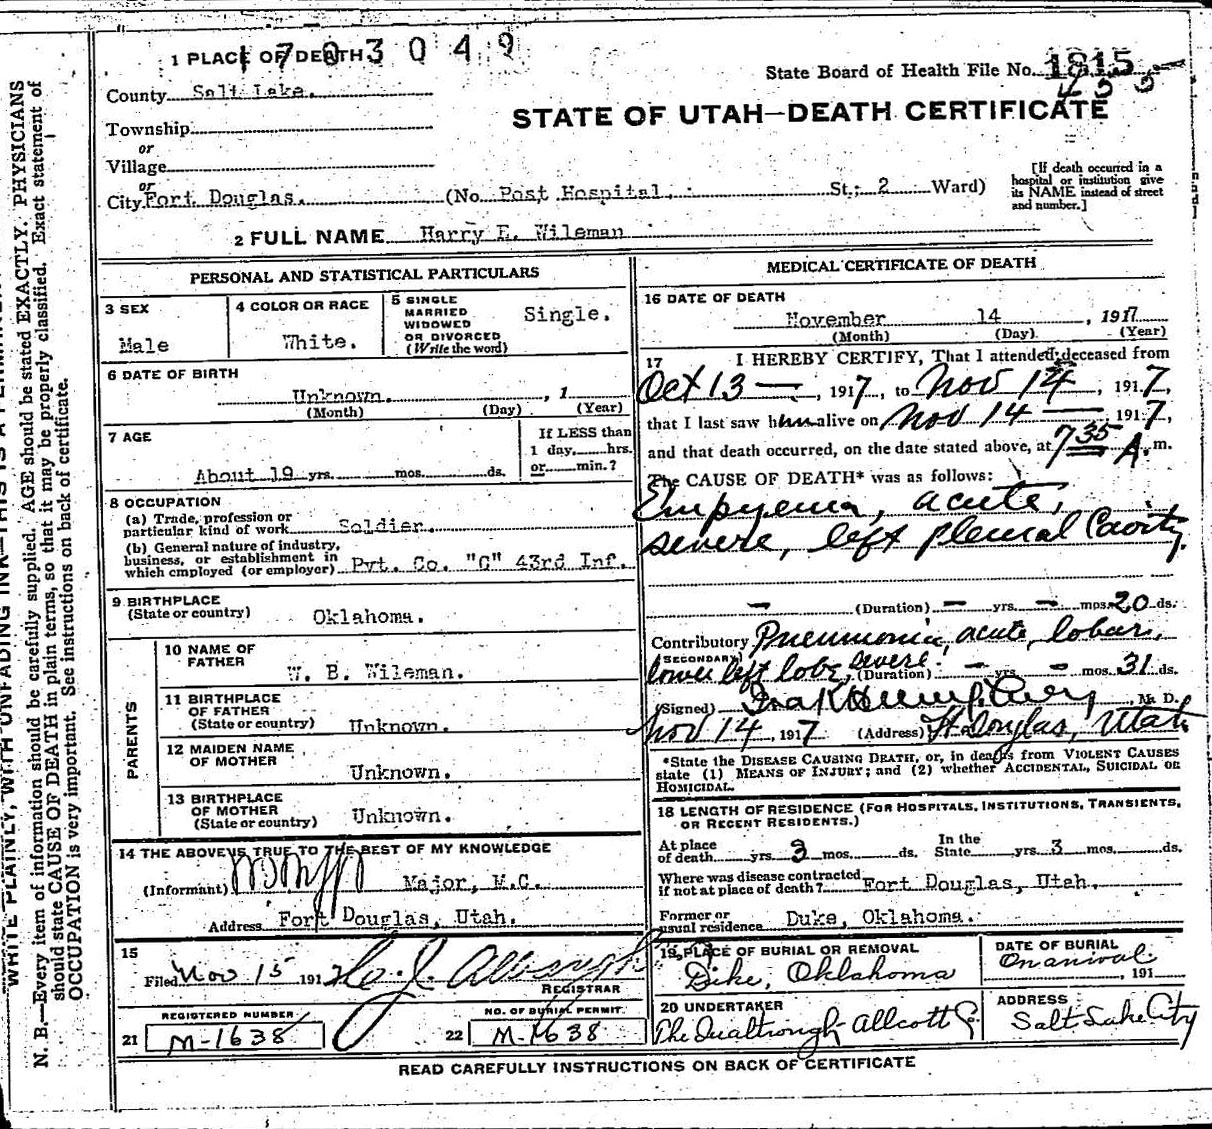 1703049
1 PLACE OF DEATH
State Board of Health File No. 1815
455
County Salt Lake.
STATE OF UTAH—DEATH CERTIFICATE
Township
or
Village
or
City Fort Douglas. (No. Post Hospital, St.; 2 Ward)
[If death occurred in a
hospital or institution give
its NAME instead of street
and number.]
2 FULL NAME Harry E. Wileman
PERSONAL AND STATISTICAL PARTICULARS
3 SEX
Male
4 COLOR OR RACE
White.
5 SINGLE
MARRIED
WIDOWED
OR DIVORCED
(Write the word)
Single.
6 DATE OF BIRTH
Unknown. , 1
(Month) (Day) (Year)
7 AGE
About 19 yrs. mos. ds.
If LESS than
1 day, hrs.
or min.?
8 OCCUPATION
(a) Trade, profession or
particular kind of work Soldier.
(b) General nature of industry,
business, or establishment in
which employed (or employer) Pvt. Co. "G" 43rd Inf.
9 BIRTHPLACE
(State or country) Oklahoma.
PARENTS
10 NAME OF
FATHER W. B. Wileman.
11 BIRTHPLACE
OF FATHER
(State or country) Unknown.
12 MAIDEN NAME
OF MOTHER
Unknown.
13 BIRTHPLACE
OF MOTHER
(State or country) Unknown.
14 THE ABOVE IS TRUE TO THE BEST OF MY KNOWLEDGE
(Informant) Major, M.C.
Address Fort Douglas, Utah.
15
Filed Nov 15 1917
REGISTRAR
REGISTERED NUMBER
21 M-1638
NO. OF BURIAL PERMIT
22 M-1638
MEDICAL CERTIFICATE OF DEATH
16 DATE OF DEATH
November 14 , 1917
(Month) (Day) (Year)
17 I HEREBY CERTIFY, That I attended deceased from
Oct 13 — , 1917, to Nov 14 , 1917,
that I last saw him alive on Nov 14 — , 1917,
and that death occurred, on the date stated above, at 7 35 A. m.
The CAUSE OF DEATH* was as follows:
Empyema, acute,
severe, left pleural Cavity.
— (Duration) — yrs. — mos. 20 ds.
Contributory Pneumonia, acute, lobar,
(SECONDARY)
lower left lobe, severe. (Duration) — yrs — mos. 31 ds.
(Signed) Ira K Humphrey , M. D.
Nov 14 , 1917 (Address) Ft Douglas, Utah
*State the DISEASE CAUSING DEATH, or, in deaths from VIOLENT CAUSES
state (1) MEANS OF INJURY; and (2) whether ACCIDENTAL, SUICIDAL OR
HOMICIDAL.
18 LENGTH OF RESIDENCE (FOR HOSPITALS, INSTITUTIONS, TRANSIENTS,
OR RECENT RESIDENTS.)
At place
of death yrs 3 mos. ds.
In the
State yrs. 3 mos. ds.
Where was disease contracted
if not at place of death? Fort Douglas, Utah.
Former or
usual residence Duke, Oklahoma.
19 PLACE OF BURIAL OR REMOVAL
Dike, Oklahoma
DATE OF BURIAL
On arrival , 191
20 UNDERTAKER
The Qualtrough-Allcott Co.
ADDRESS
Salt Lake City
READ CAREFULLY INSTRUCTIONS ON BACK OF CERTIFICATE
WRITE PLAINLY, WITH UNFADING INK—THIS IS A
N. B.—Every item of information should be carefully supplied. AGE should be stated EXACTLY. PHYSICIANS
should state CAUSE OF DEATH in plain terms, so that it may be properly classified. Exact statement of
OCCUPATION is very important. See instructions on back of certificate.